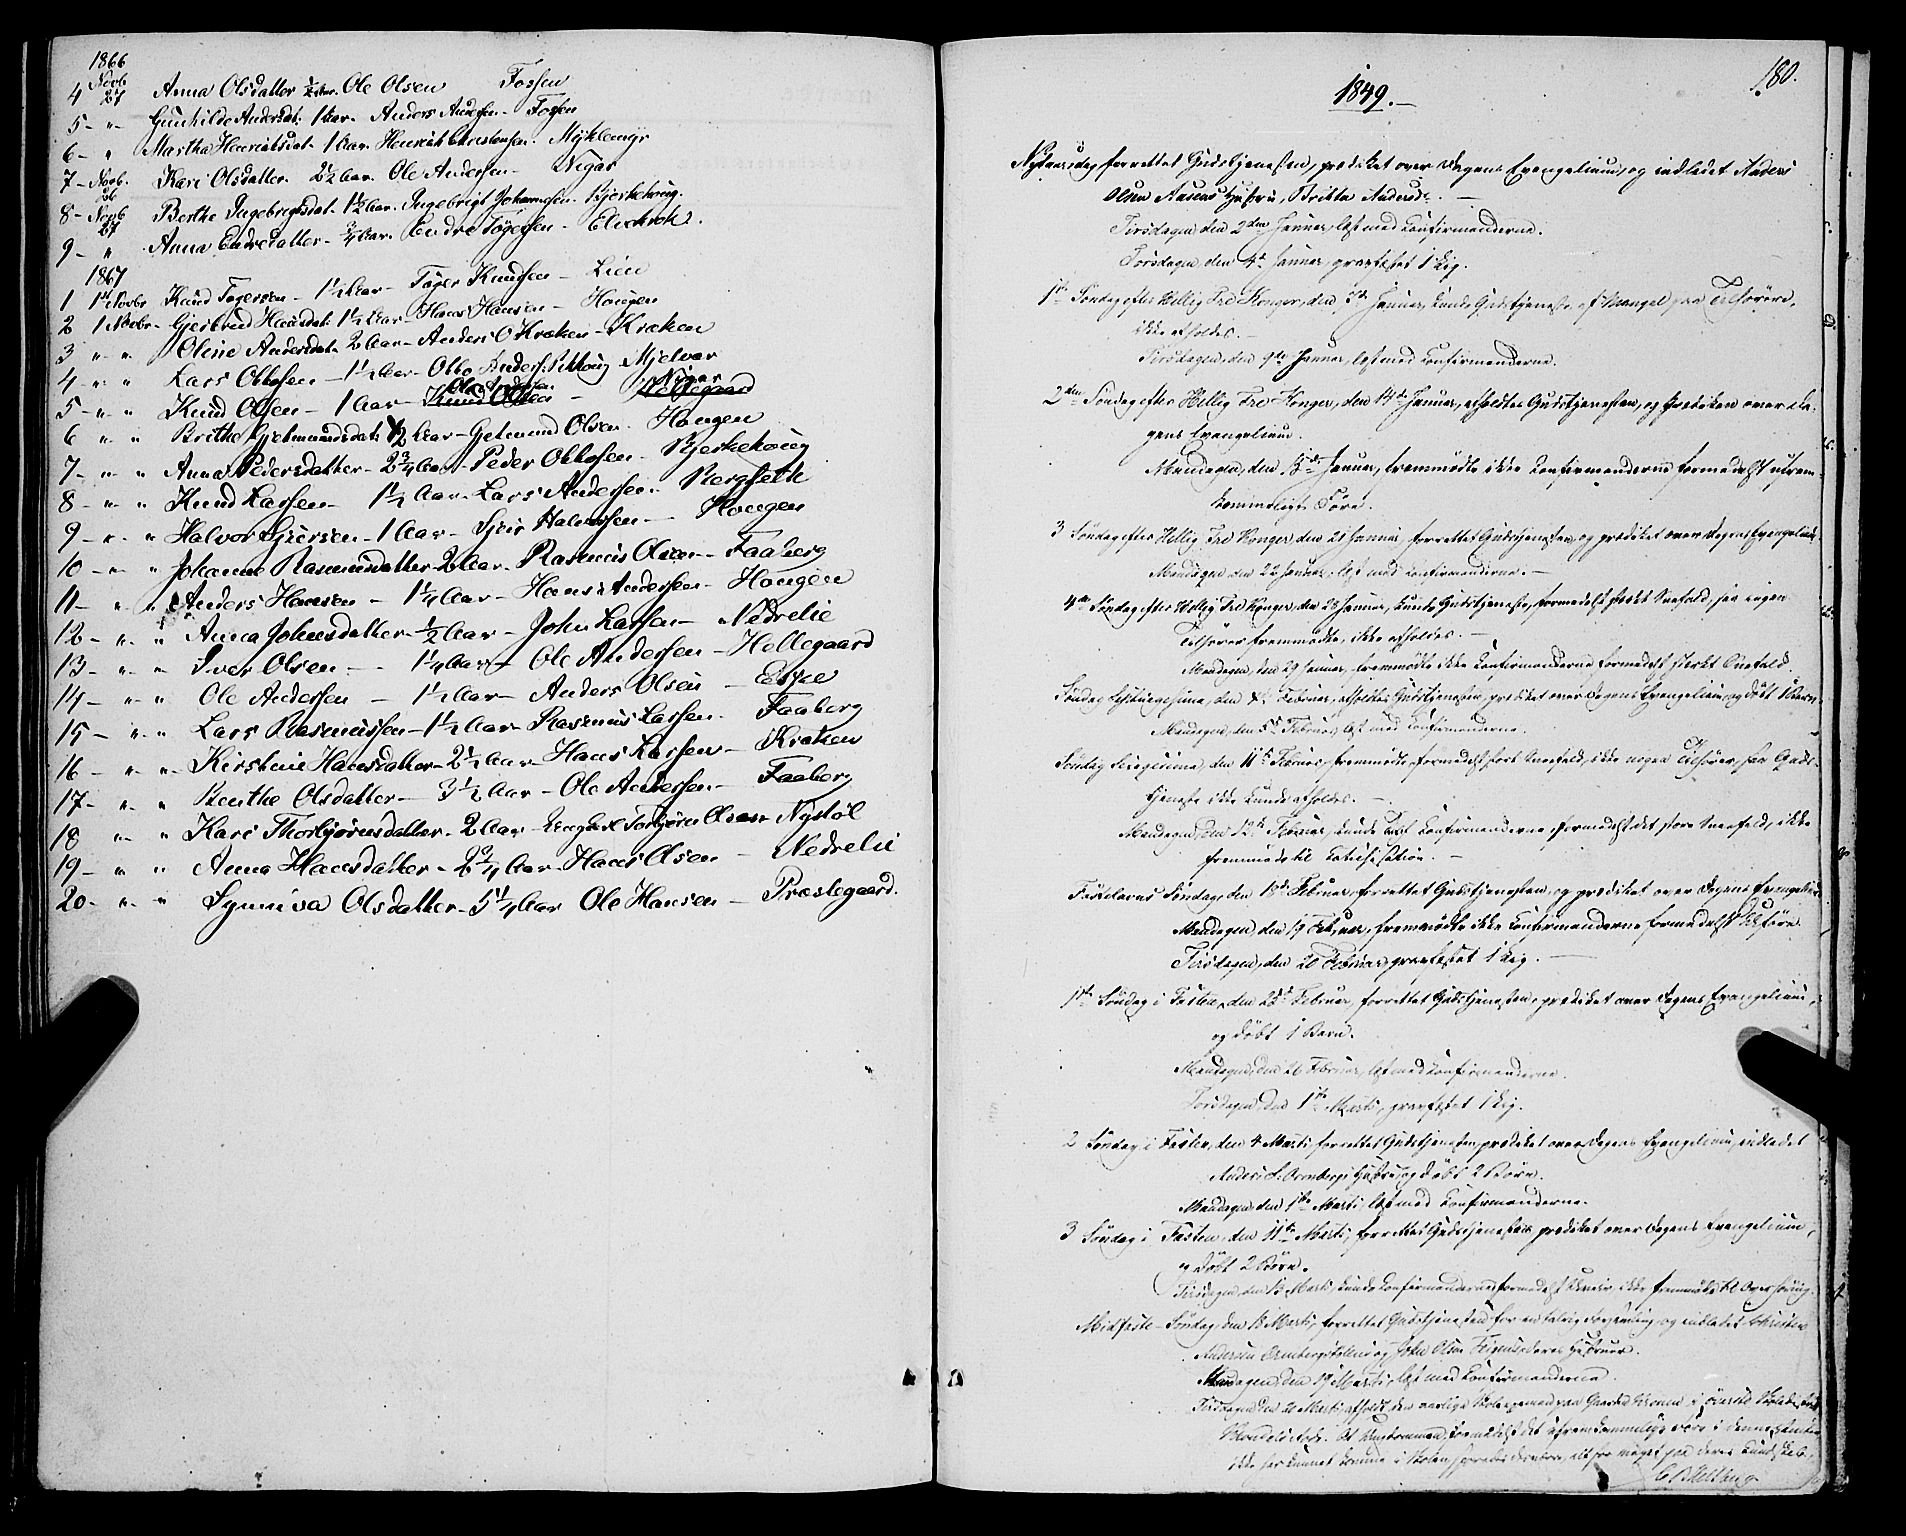 1866
4 Novb 27 Anna Olsdatter ½ Aar. Ole Olsen Fossen
5 - " - Gunhilde Andersdat: 1 Aar. Anders Andersen - Fossen
6 - " Martha Henriksdat. 1 Aar. Henrich Christensen. Myklemyr
7 - Novb. 26 Kari Olsdatter. 2½ Aar. Ole Andersen - Nigar
8 - Novb 27 Berthe Ingebrigtsdat. 1½ Aar. Ingebrigt Johannesen. Bjerkehoug.
9 - " Anna Endresdatter - ¾ Aar. Endre Tøgersen - Elvekrok.
1867
1 1ste Novbr Knud Tøgersen - 1½ Aar - Tøger Knudsen - Lien
2 1 Novbr - Gjertrud Hansdat: 1½ Aar - Hans Hansen - Hougen
3 " " Oline Andersdat. 2 Aar - Anders O Kroken - Kroken
4 - " " Lars Ottosen - 1½ Aar - Otto Anders: Mjelvær
5 - " " Knud Olsen - 1 Aar - Knud Olsen Ole Andersen - Hellegaard Nigar
6 " " Brithe Gjetmundsdat: ½ Aar - Gjetmund Olsen - Hougen
7 - " " Anna Pedersdatter - 2¾ Aar - Peder Ottosen - Bjerkehoug
8 - " " Knud Larsen - 1½ Aar - Lars Andersen - Bergseth
9 - " " Halvor Sjursen - 1 Aar - Sjur Halvorsen - Hougen
10 - " " Johanne Rasmusdatter - 2 Aar - Rasmus Olsen - Faaberg
11 - " " Anders Hansen - 1¼ Aar - Hans Andersen - Hougen
12 - " " Anna Johnsdatter - ½ Aar - John Larsen - Nedrelie
13 - " " Iver Olsen - 1¼ Aar - Ole Andersen - Hellegaard
14 - " " Ole Andersen - 1½ Aar - Anders Olsen - Espe
15 - " " Lars Rasmussen - 1½ Aar - Rasmus Larsen - Faaberg
16 - " " Kirstine Hansdatter - 2½ Aar - Hans Larsen - Kroken
17 - " " Benthe Olsdatter - 3½ Aar - Ole Andersen - Faaberg
18 " " Kari Thorbjørnsdatter - 2 Aar - Torbjørn Olsen - Nystøl
19 - " " Anna Hansdatter - 2¾ Aar - Hans Olsen - Nedrelie
20 - " " Synneva Olsdatter - 5¼ Aar Ole Hansen - Præstegaard.
180.
1849. -
Nytaarsdag forrettet Gudstjenesten, prædiket over Dagens Evangelium, og indledet Anders
Olsen Hustru, Britha Andersd:. -
Tirsdagen, den 2den Januar, læst med Confirmanderne.
Torsdagen, den 4de Januar, gravfæstet 1 Lig.
1ste Søndag efter Hellig Tre Konger, den Januar, kunde Gudstjeneste af Mangel paa Tilhørere,
ikke afholdes. -
Tirsdagen, den 9de Januar, læst med Confirmanderne.
2den Søndag efter Hellig Tre Konger, den 14de Januar, afholdtes Gudstjenesten, og prædiken over Da-
gens Evangelium.
Mandagen, den 15de Januar, fremmødte ikke Confirmanderne formedelst ufrem-
kommeligt Føre.
3 Søndag efter Hellig Tre Konger, den 21 Januar, forrettet Gudstjenesten, og prædiket over Dagens Evangelium.
Mandagen den 22 Januar, læst med Confirmanderne. -
4de Søndag efter Hellig Tre Konger, den 28 Januar, kunde Gudstjeneste, formedelst stærkt Sneefald, saa ingen
Tilhører fremmødte, ikke afholdes. -
Mandagen, den 29 Januar, fremmødte ikke Confirmanderne formedelst stærkt Sneefald.
Søndag Septuagesima, den 4de Februar, afholdtes Gudstjenesten, prædiket over Dagens Evangelium, og døbt 1 Barn.
Mandagen, den 5te Februar, læst med Confirmanderne.
Søndag Sexagesima, den 11te Februar, fremmødte, formedelst stort Sneefald, ikke nogen Tilhører, saa Guds-
tjeneste ikke kunde afholdes. -
Mandagen, den 12te Februar, kunde Confirmanderne, formedelst det store Sneefald, ikke
fremmøde til Catechisation. -
Fastelavns Søndag, den 18de Februar, forrettet Gudstjenesten, og prædiket over Dagens Evangelium.
Mandagen, den 19 Februar, fremmødte ikke Confirmanderne formedelst Uføre.
Tirsdagen, den 20 Februar, gravfæstet 1 Lig. -
1ste Søndag i Fasten, den 25de Februar, forrettet Gudstjenesten, prædiket over Dagens Evangelium,
og døbt 1 Barn.
Mandagen, den 26 Februar, læst med Confirmanderne.
Torsdagen, den 1ste Marts, gravfæstet 1 Lig.
2 Søndag i Fasten, den 4 Marts, forrettet Gudstjenesten, prædiket over Dagens Evangelium, indledet
Anders Hustru, og døbt 2 Børn.
Mandagen, den Marts, læst med Confirmanderne.
3 Søndag i Fasten, den 11te Marts, forrettet Gudstjenesten, prædiket over Dagens Evangelium,
og døbt 2 Børn.
Tirsdagen, den 13 Marts, kunde Confirmanderne formedelst ikke fremmøde til Overhøring.
Midfaste-Søndag, den 18 Marts, forrettet Gudstjenesten for en talrig Forsamling, og indledet Christen
Andersen og John Olsen deres Hustruer.
Mandagen, den 19 Marts, læst med Confirmanderne.
Tirsdagen den 20 Marts, afholdt den aarlige Skoleexamen paa Gaarden Kronen i
formedelst det ufremkommelige Føre i denne Vinter
ikke har kunnet komme i Skolen,